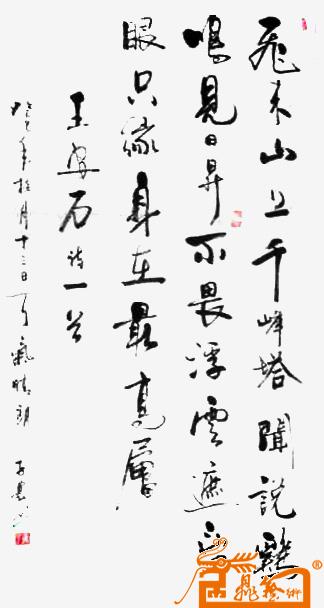 飛来山上千峰塔聞說雞
鳴見日昇不畏浮雲遮望
眼只緣身在最高層
王安石詩一首
癸巳年月十三日氣晴朗